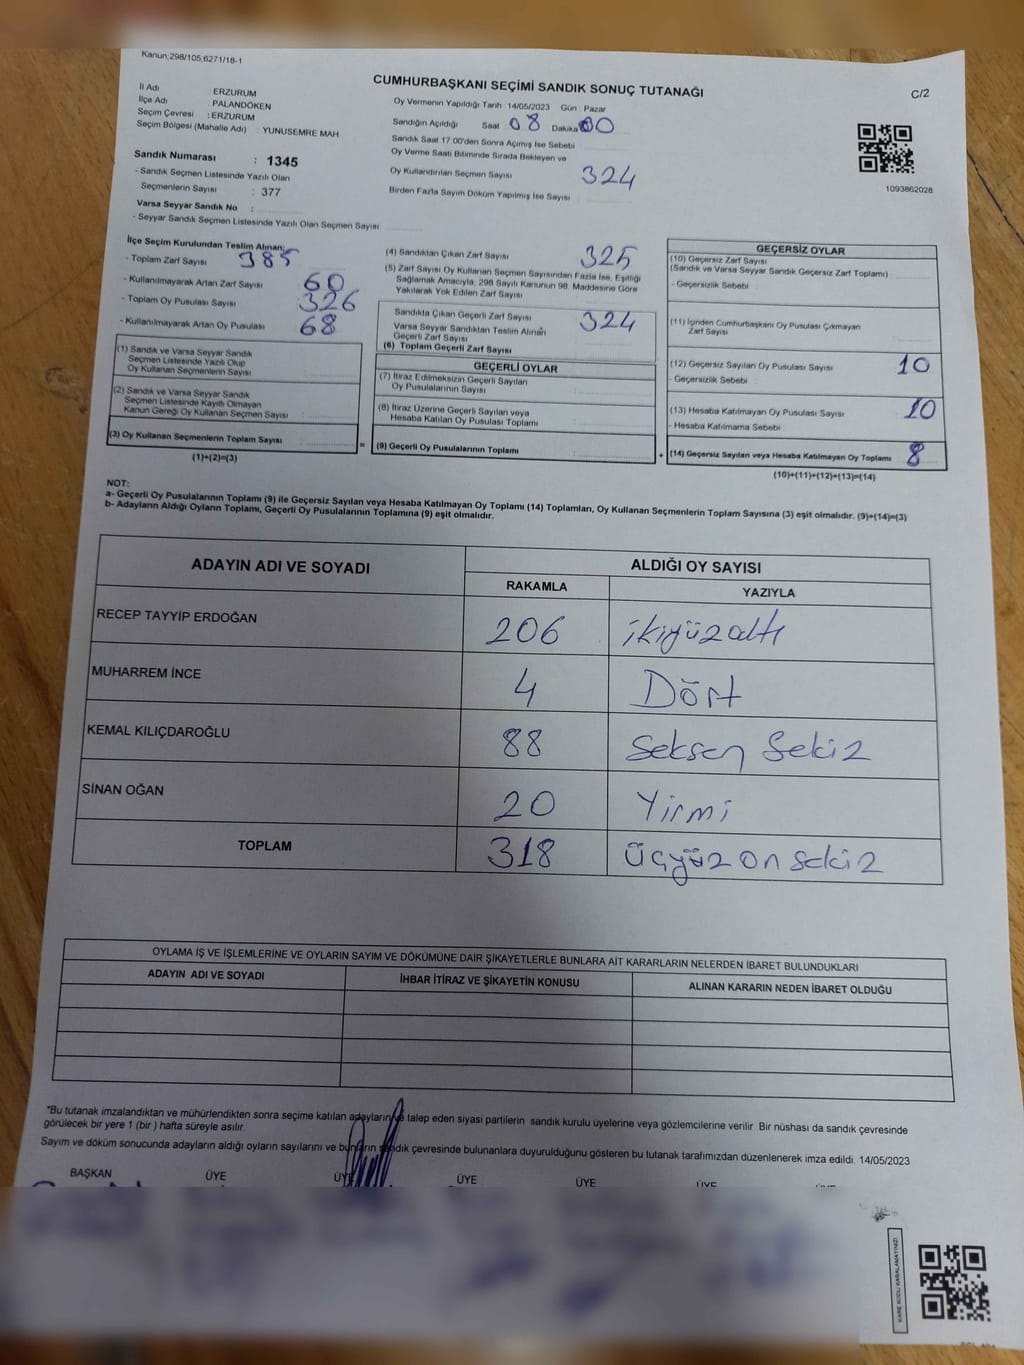 Kanun,298/105,6271/18-1
CUMHURBAŞKANI SEÇİMİ SANDIK SONUÇ TUTANAĞI
C/2
İl Adı ERZURUM
İlçe Adı : PALANDÖKEN
Seçim Çevresi : ERZURUM
Seçim Bölgesi (Mahalle Adı) : YUNUSEMRE MAH
Sandık Numarası : 1345
- Sandık Seçmen Listesinde Yazılı Olan
Seçmenlerin Sayısı : 377
Varsa Seyyar Sandık No :
- Seyyar Sandık Seçmen Listesinde Yazılı Olan Seçmen Sayısı
Oy Vermenin Yapıldığı Tarih 14/05/2023 Gün : Pazar
Sandığın Açıldığı Saat 08 Dakika 00
Sandık Saat 17.00'den Sonra Açımış İse Sebebi
Oy Verme Saati Bitiminde Sırada Bekleyen ve
Oy Kullandırılan Seçmen Sayısı 324
Birden Fazla Sayım Döküm Yapılmış İse Sayısı
1093862028
İlçe Seçim Kurulundan Teslim Alınan;
- Toplam Zarf Sayısı 385
- Kullanılmayarak Artan Zarf Sayısı 60
- Toplam Oy Pusulası Sayısı 326
- Kullanılmayarak Artan Oy Pusulası 68
(1) Sandık ve Varsa Seyyar Sandık
Seçmen Listesinde Yazılı Olup
Oy Kullanan Seçmenlerin Sayısı
(2) Sandık ve Varsa Seyyar Sandık
Seçmen Listesinde Kayıtlı Olmayan
Kanun Gereği Oy Kullanan Seçmen Sayısı :
(3) Oy Kullanan Seçmenlerin Toplam Sayısı :
(1)+(2)=(3)
(4) Sandıktan Çıkan Zarf Sayısı 325
(5) Zarf Sayısı Oy Kullanan Seçmen Sayısından Fazla İse, Eşitliği
Sağlamak Amacıyla, 298 Sayılı Kanunun 98. Maddesine Göre
Yakılarak Yok Edilen Zarf Sayısı
Sandıkta Çıkan Geçerli Zarf Sayısı 324
Varsa Seyyar Sandıktan Teslim Alınan
Geçerli Zarf Sayısı
(6) Toplam Geçerli Zarf Sayısı
GEÇERLİ OYLAR
(7) İtiraz Edilmeksizin Geçerli Sayılan
Oy Pusulalarının Sayısı
(8) İtiraz Üzerine Geçerli Sayılan veya
Hesaba Katılan Oy Pusulası Toplamı
= (9) Geçerli Oy Pusulalarının Toplamı :
GEÇERSİZ OYLAR
(10) Geçersiz Zarf Sayısı
(Sandık ve Varsa Seyyar Sandık Geçersiz Zarf Toplamı) :
- Geçersizlik Sebebi
(11) İçinden Cumhurbaşkanı Oy Pusulası Çıkmayan
Zarf Sayısı
(12) Geçersiz Sayılan Oy Pusulası Sayısı 10
- Geçersizlik Sebebi
(13) Hesaba Katılmayan Oy Pusulası Sayısı 10
- Hesaba Katılmama Sebebi
+ (14) Geçersiz Sayılan veya Hesaba Katılmayan Oy Toplamı 8
(10)+(11)+(12)+(13)=(14)
NOT:
a- Geçerli Oy Pusulalarının Toplamı (9) ile Geçersiz Sayılan veya Hesaba Katılmayan Oy Toplamı (14) Toplamları, Oy Kullanan Seçmenlerin Toplam Sayısına (3) eşit olmalıdır. (9)+(14)=(3)
b- Adayların Aldığı Oyların Toplamı, Geçerli Oy Pusulalarının Toplamına (9) eşit olmalıdır.
ADAYIN ADI VE SOYADI ALDIĞI OY SAYISI
RAKAMLA YAZIYLA
RECEP TAYYİP ERDOĞAN 206 ikiyüzaltı
MUHARREM İNCE 4 Dört
KEMAL KILIÇDAROĞLU 88 Seksen Sekiz
SİNAN OĞAN 20 Yirmi
TOPLAM 318 üçyüz on sekiz
OYLAMA İŞ VE İŞLEMLERİNE VE OYLARIN SAYIM VE DÖKÜMÜNE DAİR ŞİKAYETLERLE BUNLARA AİT KARARLARIN NELERDEN İBARET BULUNDUKLARI
ADAYIN ADI VE SOYADI İHBAR İTİRAZ VE ŞİKAYETİN KONUSU ALINAN KARARIN NEDEN İBARET OLDUĞU
*Bu tutanak imzalandıktan ve mühürlendikten sonra seçime katılan adayların ve talep eden siyasi partilerin sandık kurulu üyelerine veya gözlemcilerine verilir. Bir nüshası da sandık çevresinde
görülecek bir yere 1 (bir ) hafta süreyle asılır.
Sayım ve döküm sonucunda adayların aldığı oyların sayılarını ve bunların sandık çevresinde bulunanlara duyurulduğunu gösteren bu tutanak tarafımızdan düzenlenerek imza edildi. 14/05/2023
BAŞKAN ÜYE ÜYE ÜYE ÜYE ÜYE
KARE KODU KARALAMAYINIZ!